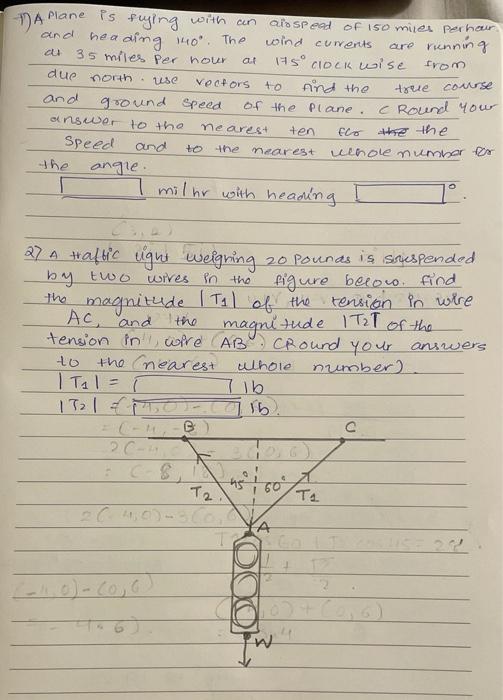 1) A Plane is flying with an airspeed of 150 miles per hour
and heading 140°. The wind currents are running
at 35 miles Per hour at 175° clock wise from
due north. use vectors to find the true course
and ground speed of the Plane. ( Round your
answer to the nearest ten for the the
speed and to the nearest whole number for
the angle.
mi/hr with heading °.
2) A traffic light weighing 20 pounds is suspended
by two wires in the figure below. find
the magnitude |T1| of the tension in wire
AC, and the magnitude |T2T of the
tension in wire (AB). (Round your answers
to the nearest whole number)
|T1| = lb
|T2| = lb.
B C
45° 60°
T2 T1
A
W